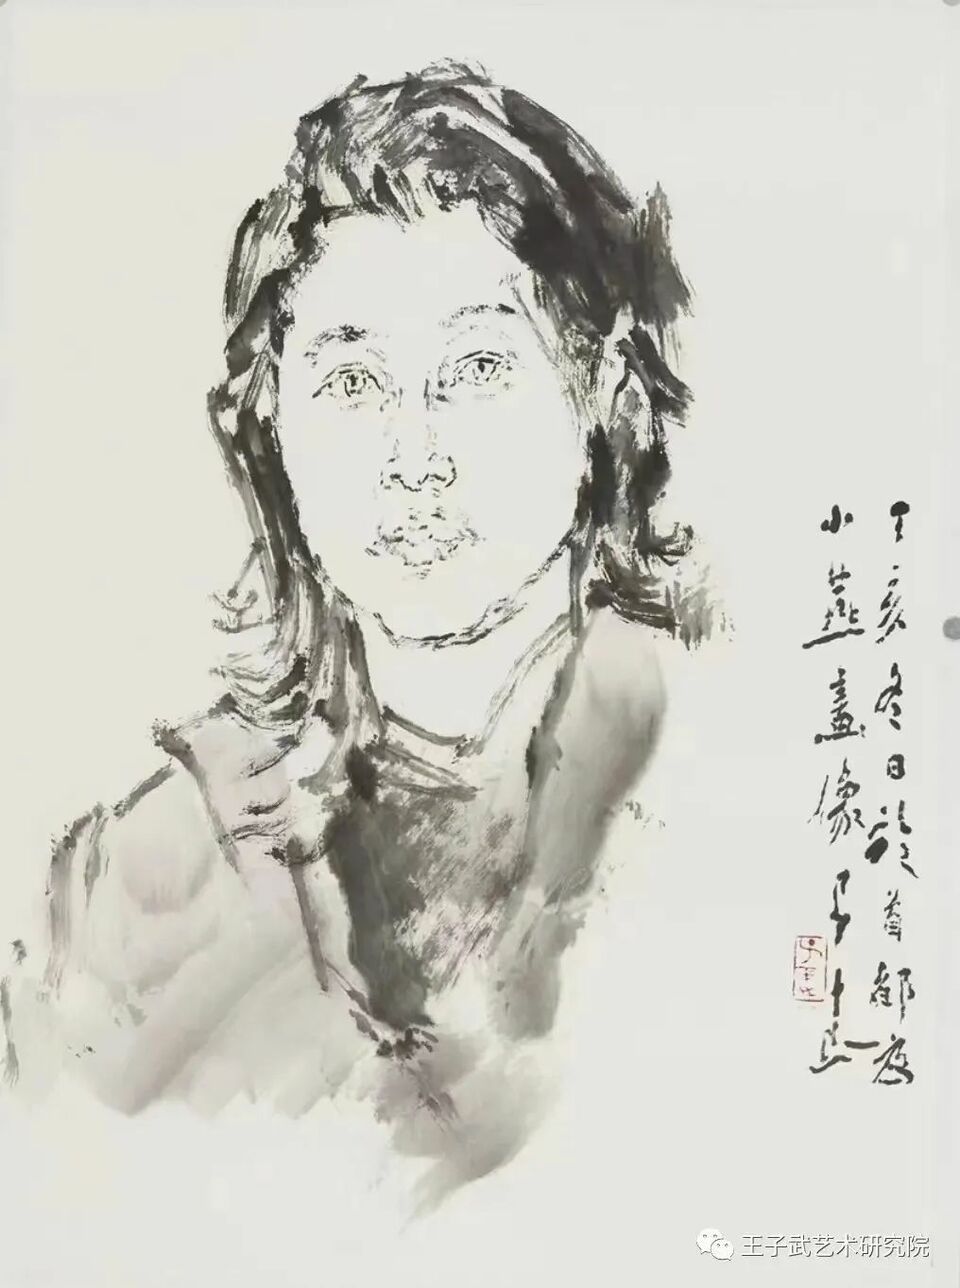 丁亥冬日於首都為
小燕畫像子武
王子武艺术研究院